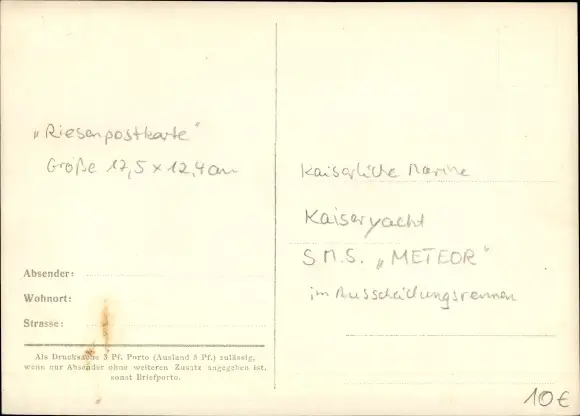 „Riesenpostkarte"
Größe 17,5 x 12,4 cm
Absender:
Wohnort:
Strasse:
Als Drucksache 3 Pf. Porto (Ausland 5 Pf.) zulässig,
wenn nur Absender ohne weiteren Zusatz angegeben ist,
sonst Briefporto.
Kaiserliche Marine
Kaiseryacht
S.M.S. „METEOR"
im Ausscheidungsrennen
10€